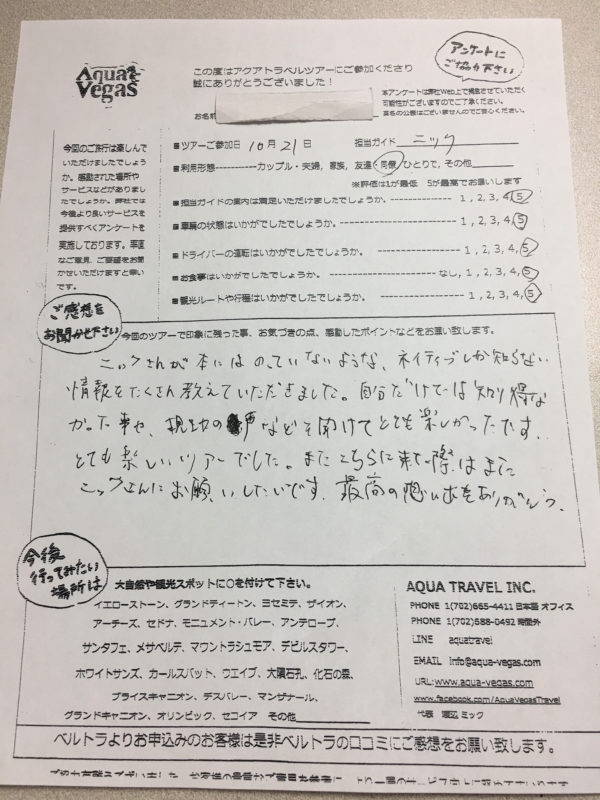 Aqua Vegas
この度はアクアトラベルツアーにご参加くださり
誠にありがとうございました！
アンケートに
ご協力下さい
本アンケートは弊社Web上で掲載させていただく
可能性がございますのでご了承ください。
お名前
今回のご旅行は楽しんで
いただけましたでしょう
か。感動された場所や
サービスなどがありまし
たでしょうか。弊社では
今後より良いサービスを
提供すべくアンケートを
実施しております。率直
なご意見、ご要望をお聞
かせいただけますと幸い
です。
■ツアーご参加日 10月21日 担当ガイド ニック
■利用形態-----------カップル・夫婦, 家族, 友達, 同僚, ひとりで, その他
※評価は1が最低 5が最高でお願いします
■担当ガイドの案内は満足いただけましたでしょうか。 ---------- 1, 2, 3, 4, 5
■車輌の状態はいかがでしたでしょうか。 ---------- 1, 2, 3, 4, 5
■ドライバーの運転はいかがでしたでしょうか。 ---------- 1, 2, 3, 4, 5
■お食事はいかがでしたでしょうか。 ---------- なし, 1, 2, 3, 4, 5
■観光ルートや行程はいかがでしたでしょうか。 ---------- 1, 2, 3, 4, 5
ご感想を
お聞かせ下さい
今回のツアーで印象に残った事、お気づきの点、感動したポイントなどをお願い致します。
ニックさんが本にはのっていないような、ネイティブしか知らない
情報をたくさん教えていただきました。自分だけでは知り得な
かった事や、現地の声などを聞けてとても楽しかったです、
とても楽しいツアーでした。またこちらに来た際はまた
ニックさんにお願いしたいです。最高の思い出をありがとう。
今後
行ってみたい
場所は
大自然や観光スポットに○を付けて下さい。
イエローストーン、グランドティートン、ヨセミテ、ザイオン、
アーチーズ、セドナ、モニュメント・バレー、アンテロープ、
サンタフェ、メサベルテ、マウントラシュモア、デビルスタワー、
ホワイトサンズ、カールスバット、ウエイブ、大隕石孔、化石の森、
ブライスキャニオン、デスバレー、マンザナール、
グランドキャニオン、オリンピック、セコイア その他
AQUA TRAVEL INC.
PHONE 1(702)665-4411 日本語 オフィス
PHONE 1(702)588-0492 時間外
LINE aquatravel
EMAIL info@aqua-vegas.com
URL:www.aqua-vegas.com
www.facebook.com/AquaVegasTravel
代表 渡辺 ミック
ベルトラよりお申込みのお客様は是非ベルトラの口コミにご感想をお願い致します。